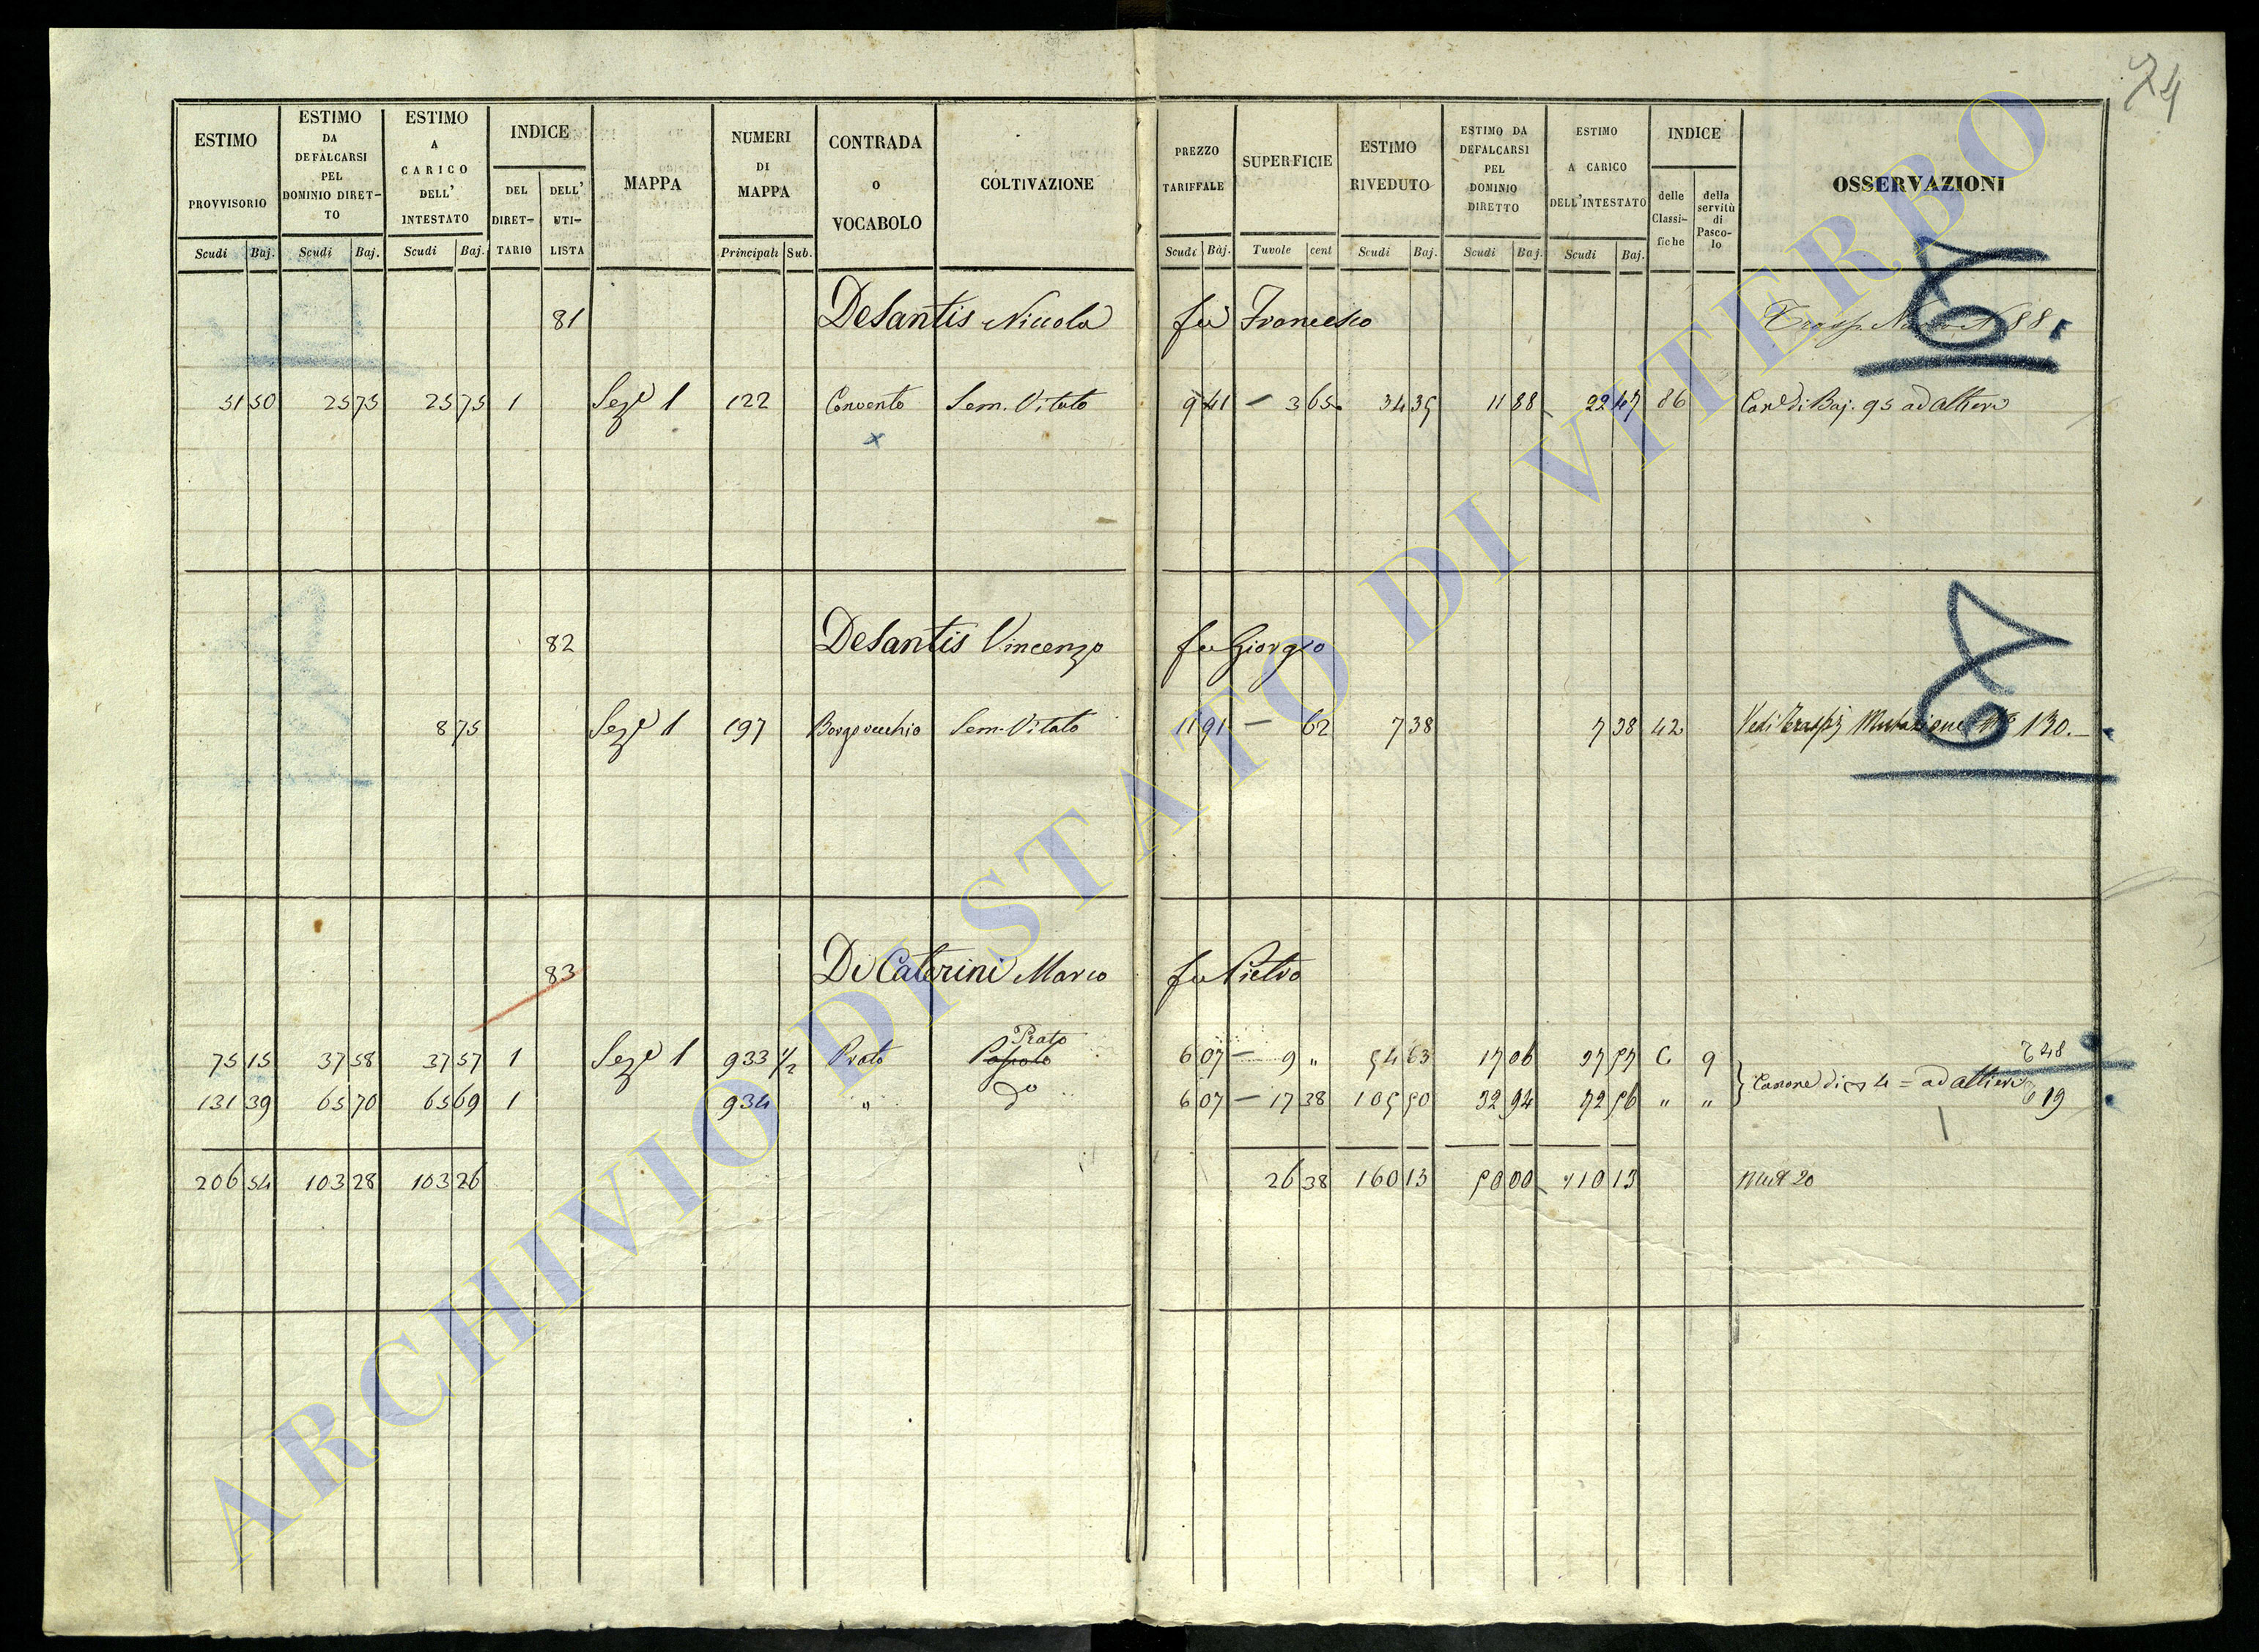 74
ESTIMO PROVVISORIO Scudi Baj.
ESTIMO DA DEFALCARSI PEL DOMINIO DIRET-TO Scudi Baj.
ESTIMO A CARICO DELL' INTESTATO Scudi Baj.
INDICE DEL DIRET-TARIO DELL' UTI-LISTA
MAPPA
NUMERI DI MAPPA Principali Sub.
CONTRADA O VOCABOLO
COLTIVAZIONE
PREZZO TARIFFALE Scudi Baj.
SUPERFICIE Tavole cent
ESTIMO RIVEDUTO Scudi Baj.
ESTIMO DA DEFALCARSI PEL DOMINIO DIRETTO Scudi Baj.
ESTIMO A CARICO DELL'INTESTATO Scudi Baj.
INDICE delle Classi-fiche della servitù di Pasco-lo
OSSERVAZIONI
81 DeSantis Niccola fu Francesco 88
51 50 25 75 25 75 1 Sez.e 1 122 Convento Sem. Vitato 9 41 - 3 65 34 35 11 88 22 47 86 Can.e di Baj. 95 ad Altieri
x
82 DeSantis Vincenzo fu Giorgio
8 75 Sez.e 1 197 Borgovecchio Sem. Vitato 11 91 - 62 7 38 7 38 42 Vedi Trasp. Mutazione N.o 130.
83 Di Caterini Marco fu Pietro
Prato
75 15 37 58 37 57 1 Sez.e 1 933 1/2 Prato Pascolo 6 07 - 9 " 54 63 17 06 37 57 C 9 48
Canone di 4 = ad Altieri
131 39 65 70 65 69 1 934 " do 6 07 - 17 38 105 50 32 94 72 56 " " 19
206 54 103 28 103 26 26 38 160 13 50 00 110 13 Mut 20
ARCHIVIO DI STATO DI VITERBO